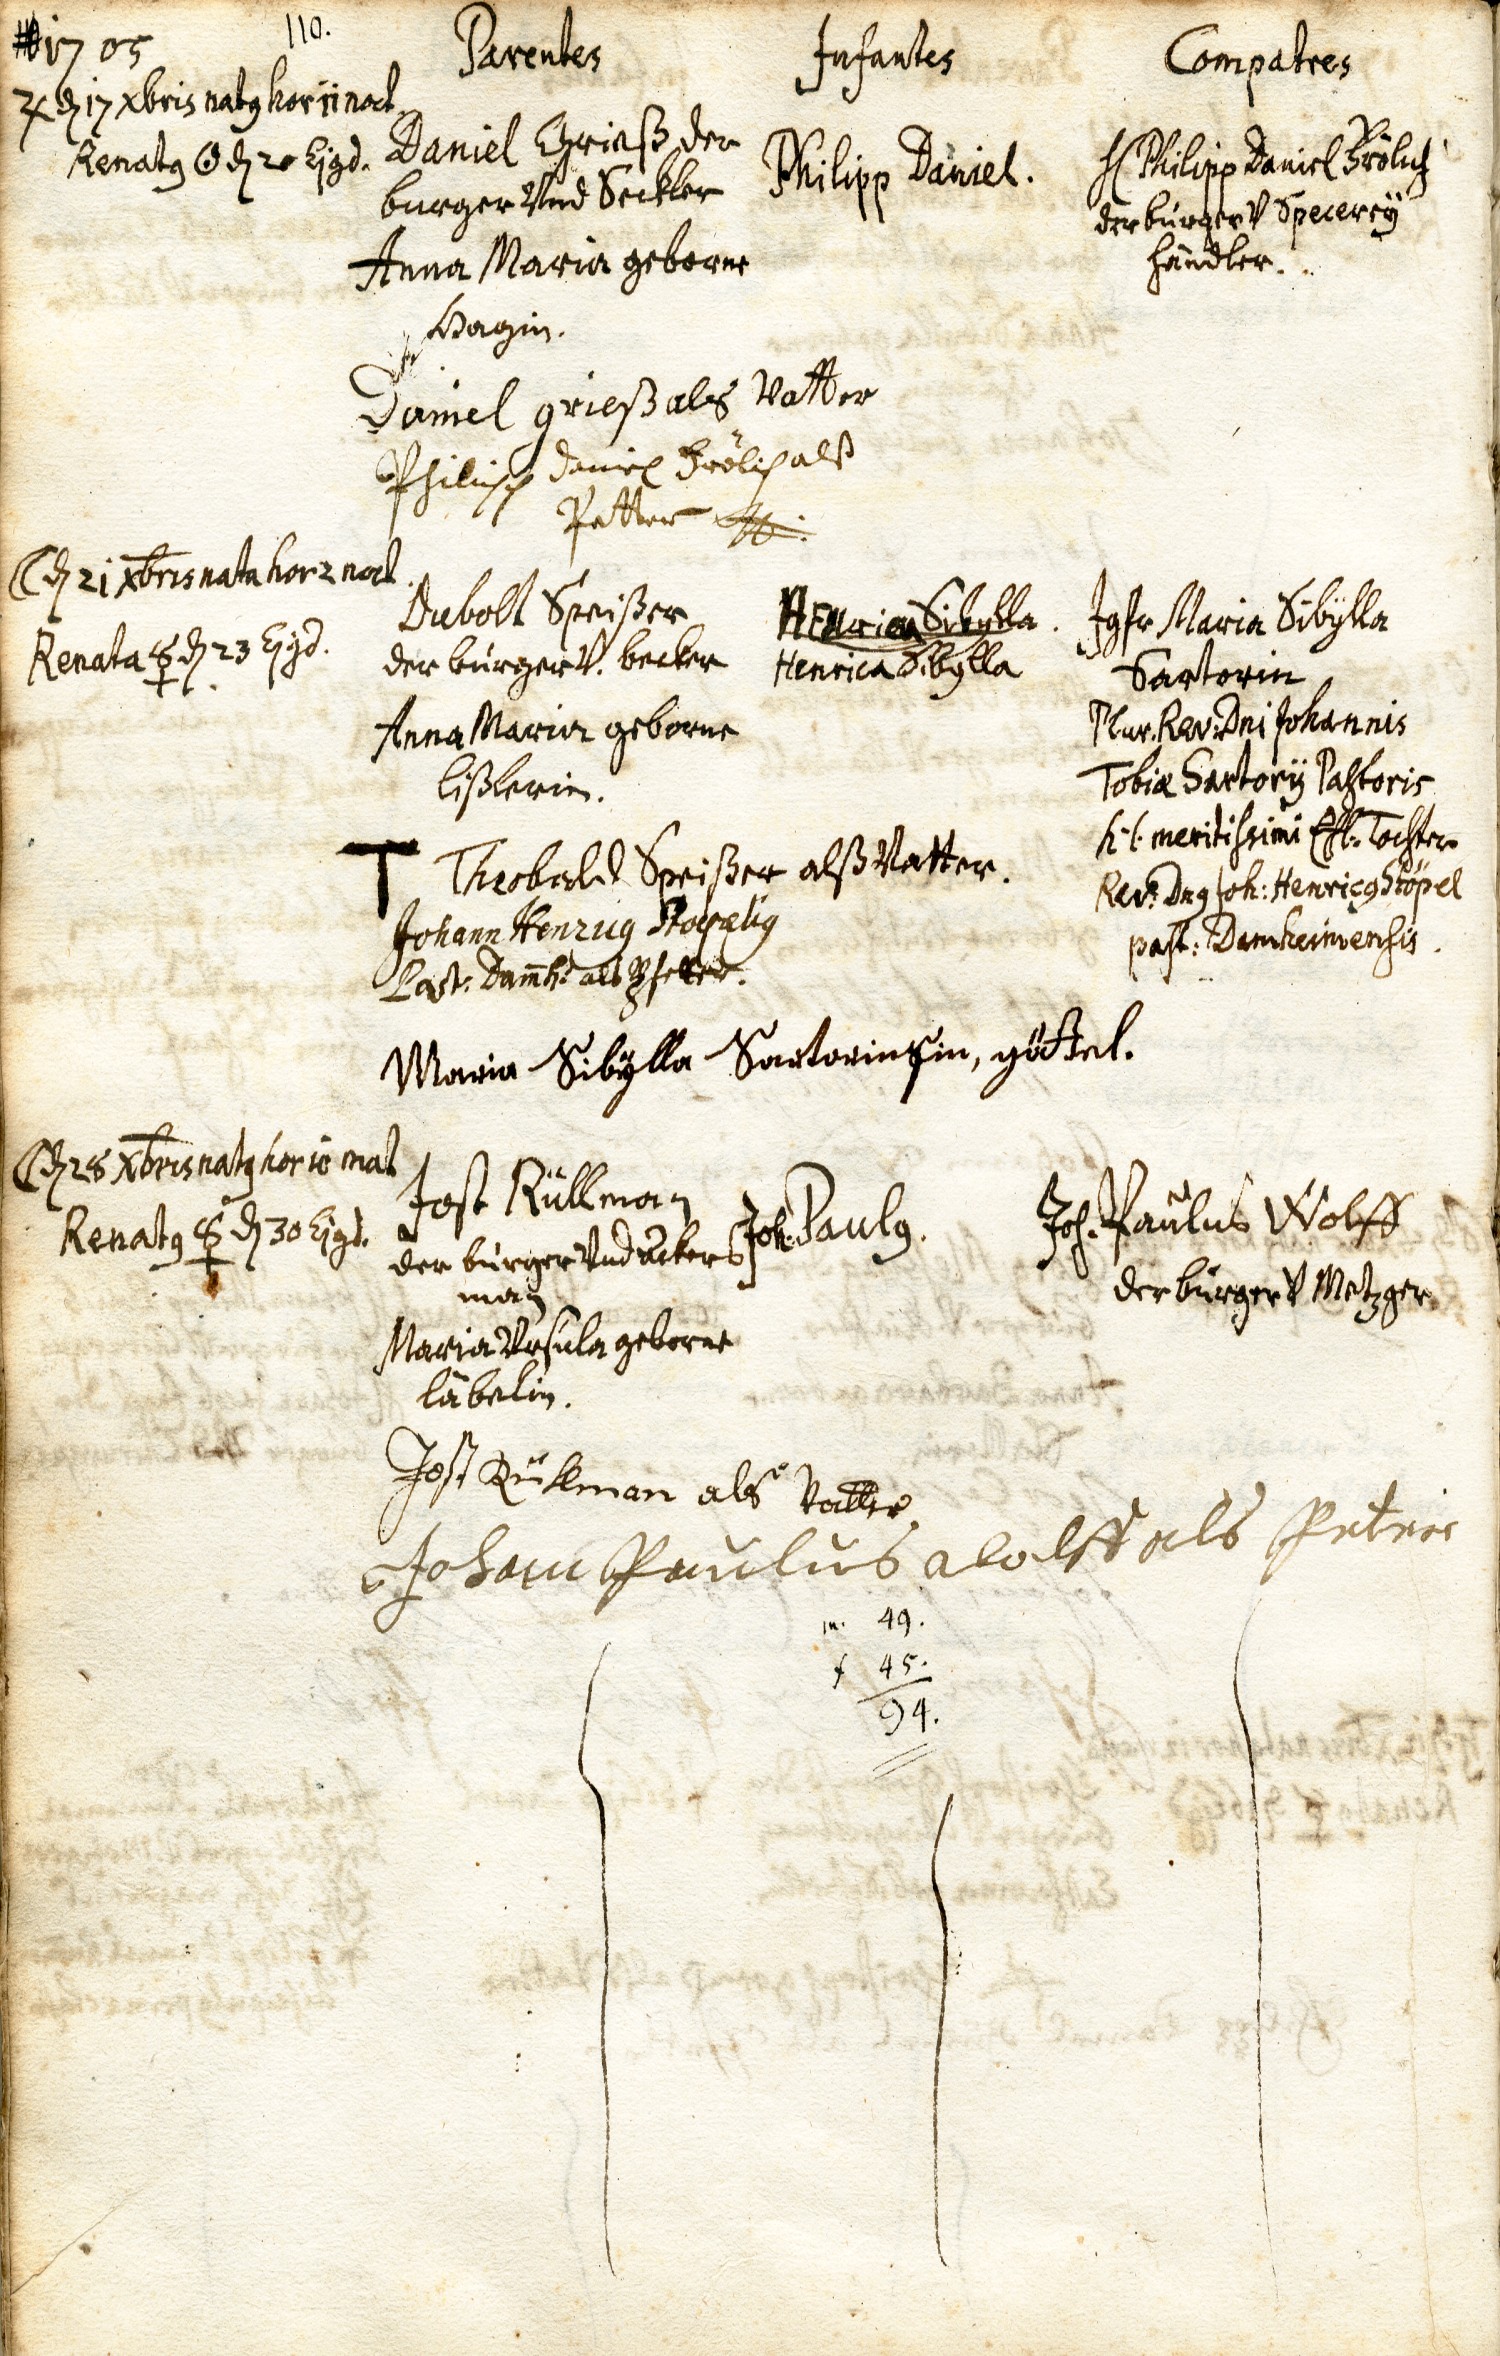 1705
110.
Parentes
Infantes
Compatres
♃ d 17 Xbris natg hor 11 noct.
Renatg ☉ d 20 Ejgd.
Daniel Grieß der
burger Und Seckler
Anna Maria geborne
Hagin.
Philipp Daniel.
H Philipp Daniel Frölich
der burger V Specerey
händler.
Daniel grieß als Vatter
Philipp daniel Frölich alß
Petter
☾ d 21 Xbris nata hor 2 noct.
Renata ☿ d 23 Ejgd.
Diebolt Speißer
der burger V. becker
Anna Maria geborne
lißlerin.
Henrica Sibylla.
Henrica Sibylla
Jgfr Maria Sibÿlla
Sartorin
Plur. Rev: Dni Johannis
Tobiæ Sartorÿ Pastoris
h. l. meritissimi Ehl: Tochter
Rev: Dng Joh: Henricg Stöpel
past: Damheimensis.
T Theobald Speißer alß Vatter.
Johann Henricg Stöpelig
Past. Dam̄h: als Pfetter.
Maria Sibÿlla Sartoriußin, göttel.
☾ d 28 Xbris natg hor 10 mat
Renatg ☿ d 30 Ejgd.
Jost Rüllman
der burger Und Ackers
man
Maria Ursula geborne
läbelin.
Joh: Paulg.
Joh. Paulus Wolff
der burger V Metzger.
Jost Rüllman als Vatter
Johann Paulus Wolff als Petter
m. 49.
f 45.
94.